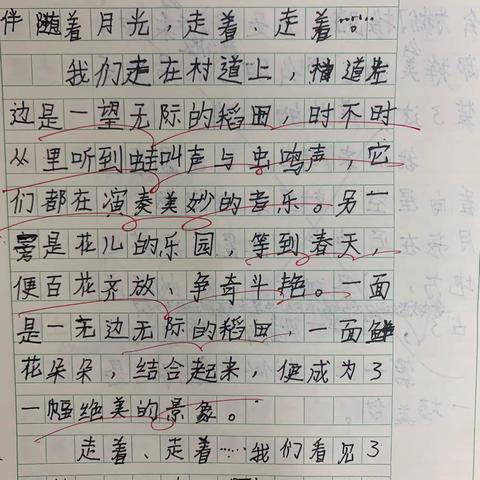 伴随着月光，走着、走着……
我们走在村道上，道左
边是一望无际的稻田，时不时
从里听到蛙叫声与虫鸣声，它
们都在演奏美妙的音乐。另一
旁是花儿的乐园，等到春天，
便百花齐放、争奇斗艳。一面
是一无边无际的稻田，一面鲜
花朵朵，结合起来，便成为了
一幅绝美的景象。
走着、走着……我们看见了